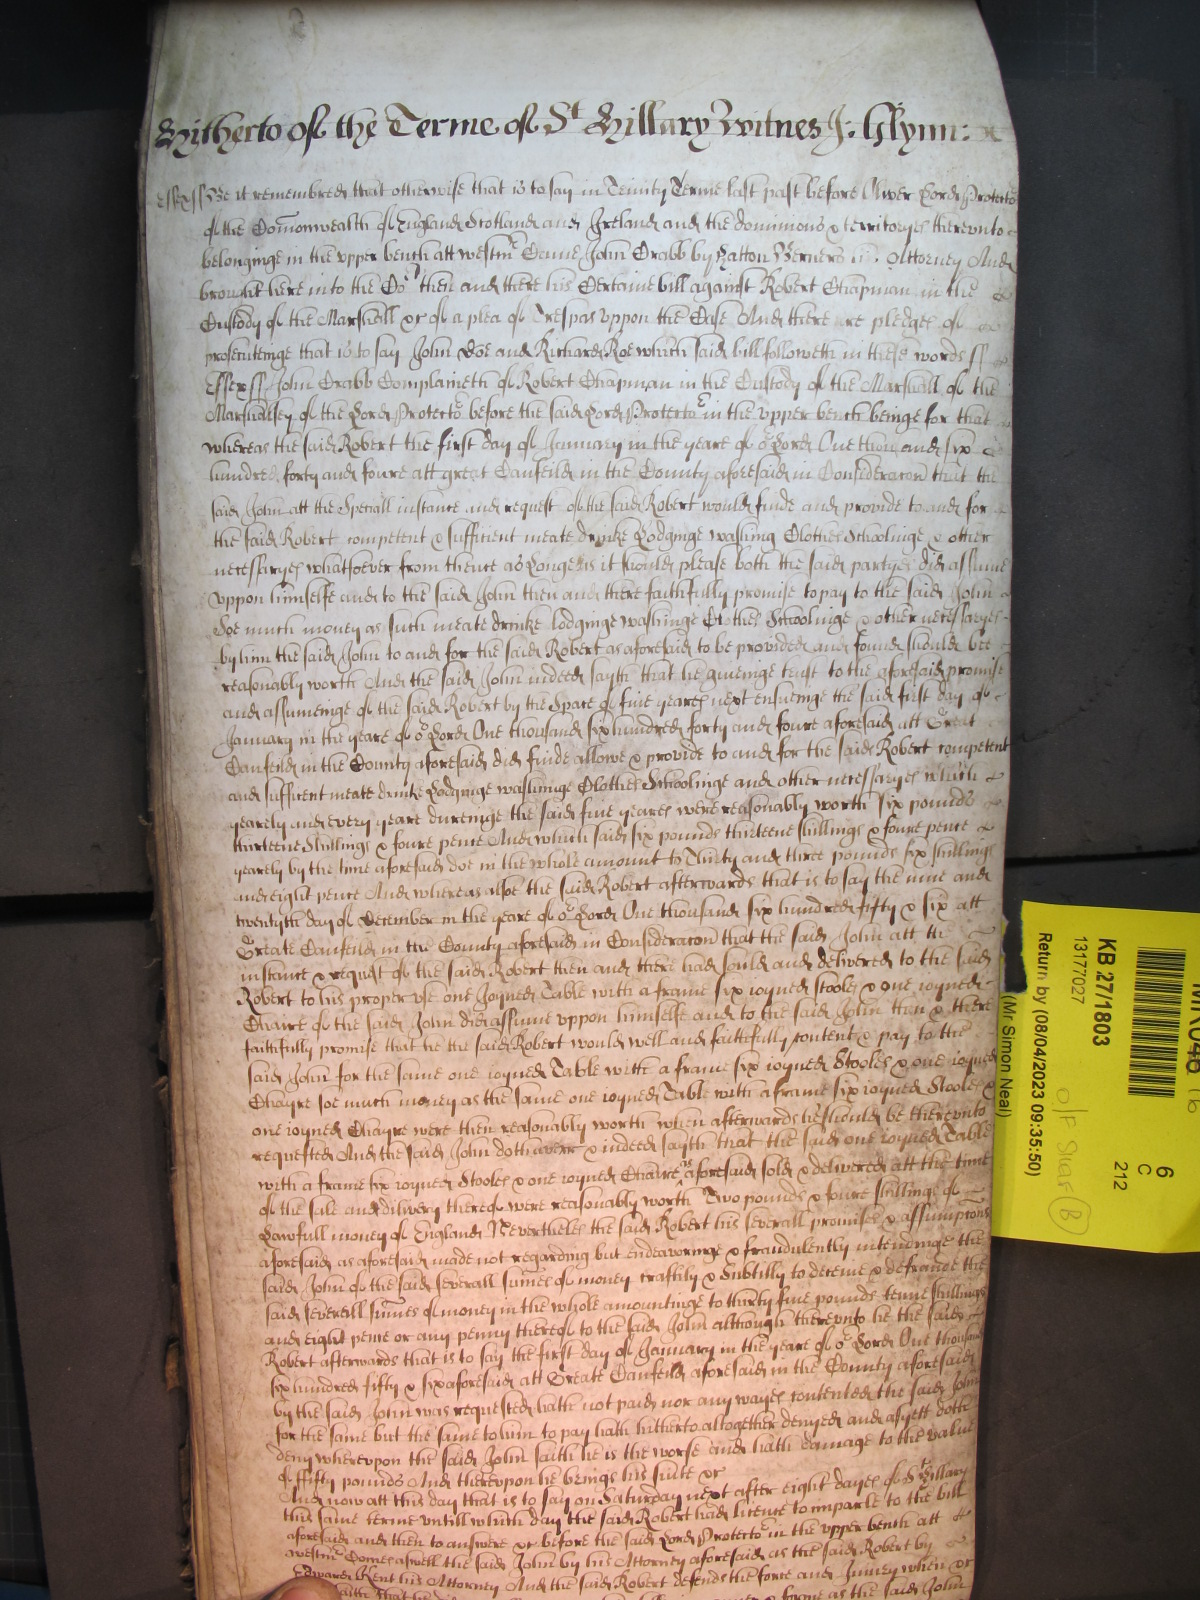 Hitherto of the Terme of St Hillary Witnes J: Glynn:
Essex ss Be it remembred that otherwise that is to say in Trinity Terme last past before Oliver Lord Protector
of the Comonwealth of England Scotland and Ireland and the dominions & territoryes therevnto
belonginge in the vpper bench att Westmr Came John Crabb by Hatton Berners his Attorney And
brought here into the Cort then and there his Certaine bill against Robert Chapman in the
Custody of the Marshall &c of a plea of Trespas vppon the Case And there are pledges of
prosecuteinge that is to say John Doe and Richard Roe which said bill followeth in these words ss
Essex ss John Crabb Complaineth of Robert Chapman in the Custody of the Marshall of the
Marshallsey of the Lord Protector before the said Lord Protector in the vpper bench beinge for that
whereas the said Robert the first day of January in the yeare of or Lord One thousand six
hundred forty and foure att great Canfeild in the County aforesaid in Consideracon that the
said John att the Speciall instance and request of the said Robert would finde and provide to and for
the said Robert competent & sufficient meate drinke Lodginge washing Clothes Schoolinge & other
necessaryes whatsoever from thence as Longe as it should please both the said partyes did assume
vppon himselfe and to the said John then and there faithfully promise to pay to the said John
Soe much money as such meate drinke lodginge washinge Clothes Schoolinge & other necessaryes
by him the said John to and for the said Robert as aforesaid to be provided and found should bee
reasonably worth And the said John indeed sayth that he giveinge trust to the aforesaid promise
and assumeinge of the said Robert by the Space of five yeares next ensueinge the said first day of
January in the yeare of or Lord One thousand six hundred forty and foure aforesaid att Great
Canfeild in the County aforesaid did finde allowe & provide to and for the said Robert competent
and sufficent meate drinke Lodginge washinge Clothes Schoolinge and other necessaryes which
yearely and every yeare dureinge the said five yeares were reasonably worth six pounds
thirteene Shillings & foure pence And which said six pounds thirteene shillings & foure pence
yearely by the time aforesaid doe in the whole amount to Thirty and three pounds six shillings
and eight pence And whereas alsoe the said Robert afterwards that is to say the nine and
twentyth day of December in the yeare of or Lord One thousand six hundred fifty & six att
Greate Canfeild in the County aforesaid in Consideracon that the said John att the
instance & request of the said Robert then and there had sould and delivered to the said
Robert to his proper vse one Joyned Table with a frame six ioyned stooles & one ioyned
Chaire of the said John did assume vppon himselfe and to the said John then & there
faithfully promise that he the said Robert would well and faithfully content & pay to the
said John for the same one ioyned Table with a frame six ioyned Stooles & one ioyned
Chayre soe much money as the same one ioyned Table with a frame six ioyned Stooles &
one ioyned Chayre were then reasonably worth when afterwards he should be therevnto
requested And the said John doth averr & indeed sayth that the said one ioyned Table
with a frame six ioyned Stooles & one ioyned Chaire aforesaid sold & delivered att the time
of the sale and dilivery thereof were reasonably worth Two pounds & foure shillings of
Lawfull money of England Neverthelesse the said Robert his severall promises & assumptions
aforesaid as aforesaid made not regarding but endeavoringe & fraudulently intendinge the
said John of the said severall sumes of money craftily & Subtilly to deceive & defraude the
said severall sumes of money in the whole amountinge to thirty five pounds tenne shillings
and eight pence or any penny thereof to the said John although therevnto he the said
Robert afterwards that is to say the first day of January in the yeare of or Lord One thousand
six hundred fifty & six aforesaid att Greate Canfeild aforesaid in the County aforesaid
by the said John was requested hath not paid nor any wayes contented the said John
for the same but the same to him to pay hath hitherto altogether denyed and as yett doth
deny wherevpon the said John saith he is the worse and hath damage to the value
of fifty pounds And therevpon he brings his suite &c
And now att this day that is to say on Saturday next after eight dayes of St Hillary
this same terme vntill which day the said Robert had licence to imparle to the bill
aforesaid and then to answere &c before the said Lord Protector in the vpper bench att
Westmr Comes aswell the said John by his Attorney aforesaid as the said Robert by
Edward Kent his Attorney And the said Robert defends the force and Iniury when &c
saith that he
as the said John
6
C
212
KB 27/1803
13177027
Return by (08/04/2023 09:35:50)
(Mr Simon Neal)
O/P Shelf (B)